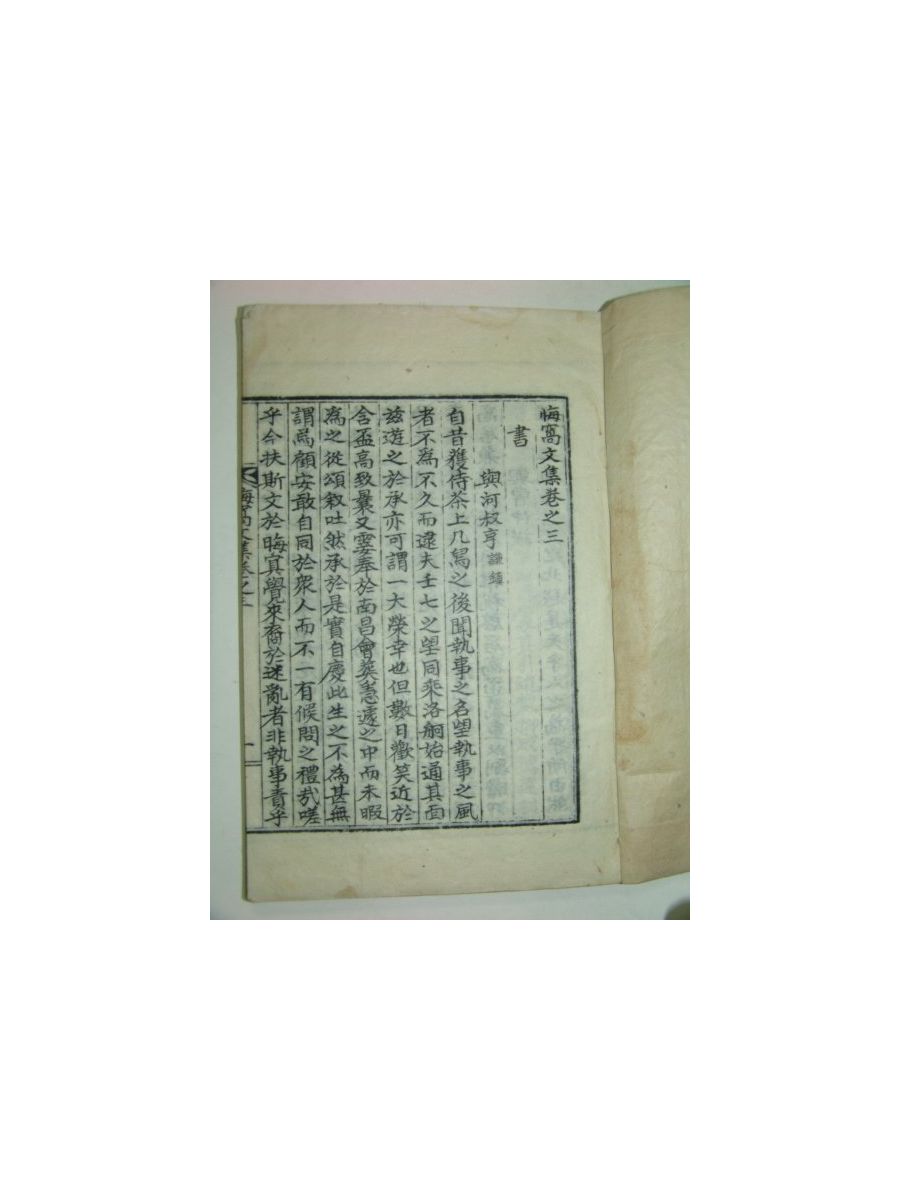 悔窩文集卷之三
書
與河叔亨謙鎮
自昔獲侍茶上几舃之後聞執事之名望執事之風
者不為不久而逮夫壬七之望同乘洛舸始通其面
玆遊之於承亦可謂一大榮幸也但數日歡笑近於
含盃高致曩又奉於南昌會葬遽之中而未暇
為之從頌敘吐然承於是實自慶此生之不為甚無
謂焉顧安敢自同於眾人而不一有候問之禮哉嗟
乎今扶斯文於晦冥覺來裔於迷亂者非執事責乎
悔窩文集卷之三
一